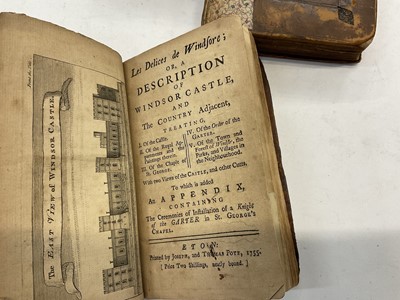 Les Delices de Windsore;
OR, A
DESCRIPTION
OF
WINDSOR CASTLE,
AND
The COUNTRY Adjacent,
TREATING,
I. Of the Castle.
II. Of the Royal Apartments and the Paintings therein.
III. Of the Chapel of St. GEORGE.
IV. Of the Order of the GARTER.
V. Of the Town and Forest of Windsor, the Parks, and Villages in the Neighbourhood.
With two Views of the CASTLE, and other Cuts.
To which is added
An APPENDIX,
CONTAINING
The Ceremonies of Installation of a Knight
of the GARTER in St. GEORGE's
CHAPEL.
ETON:
Printed by JOSEPH, and THOMAS POTE, 1755.
[Price Two Shillings, neatly bound.]
THE EAST VIEW of WINDSOR CASTLE.